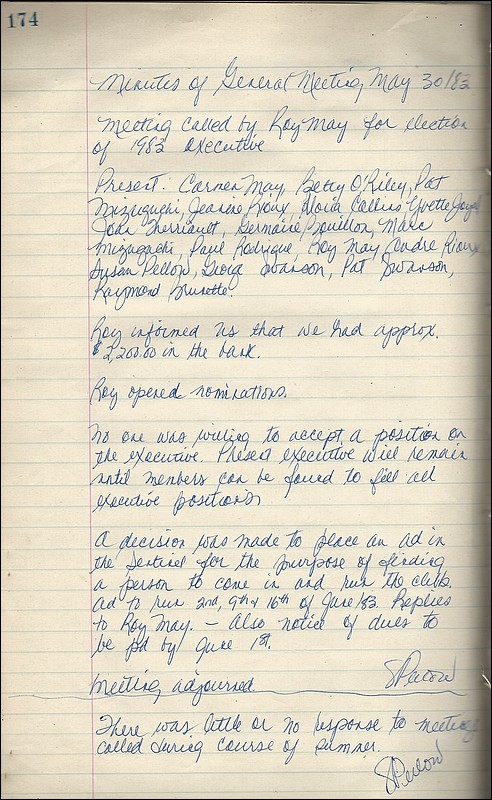 174
Minutes of General Meeting, May 30/83
Meeting called by Roy May for election
of 1983 executive
Present: Carmen May, Betty O'Riley, Pat
Mizuguchi, Jeanine Rioux, Collins Yvette
Joan Therriault, Germaine Papillon, Marc
Mizuguchi, Paul Rodrique, Roy May, Andre Rioux,
Susan Pellow, Swanson, Pat Swanson,
Raymond Brunette.
Roy informed us that we had approx.
$2,200.00 in the bank.
Roy opened nominations.
No one was willing to accept a position on
the executive. Present executive will remain
until members can be found to fill all
executive positions
A decision was made to place an ad in
the Sentinel for the purpose of finding
a person to come in and run the club.
ad to run 2nd, 9th & 16th of June/83. Replies
to Roy May. - Also notice of dues to
be pd by June 1st.
Meeting adjourned. SPellow
There was little or no response to meeting
called during course of summer.
SPellow